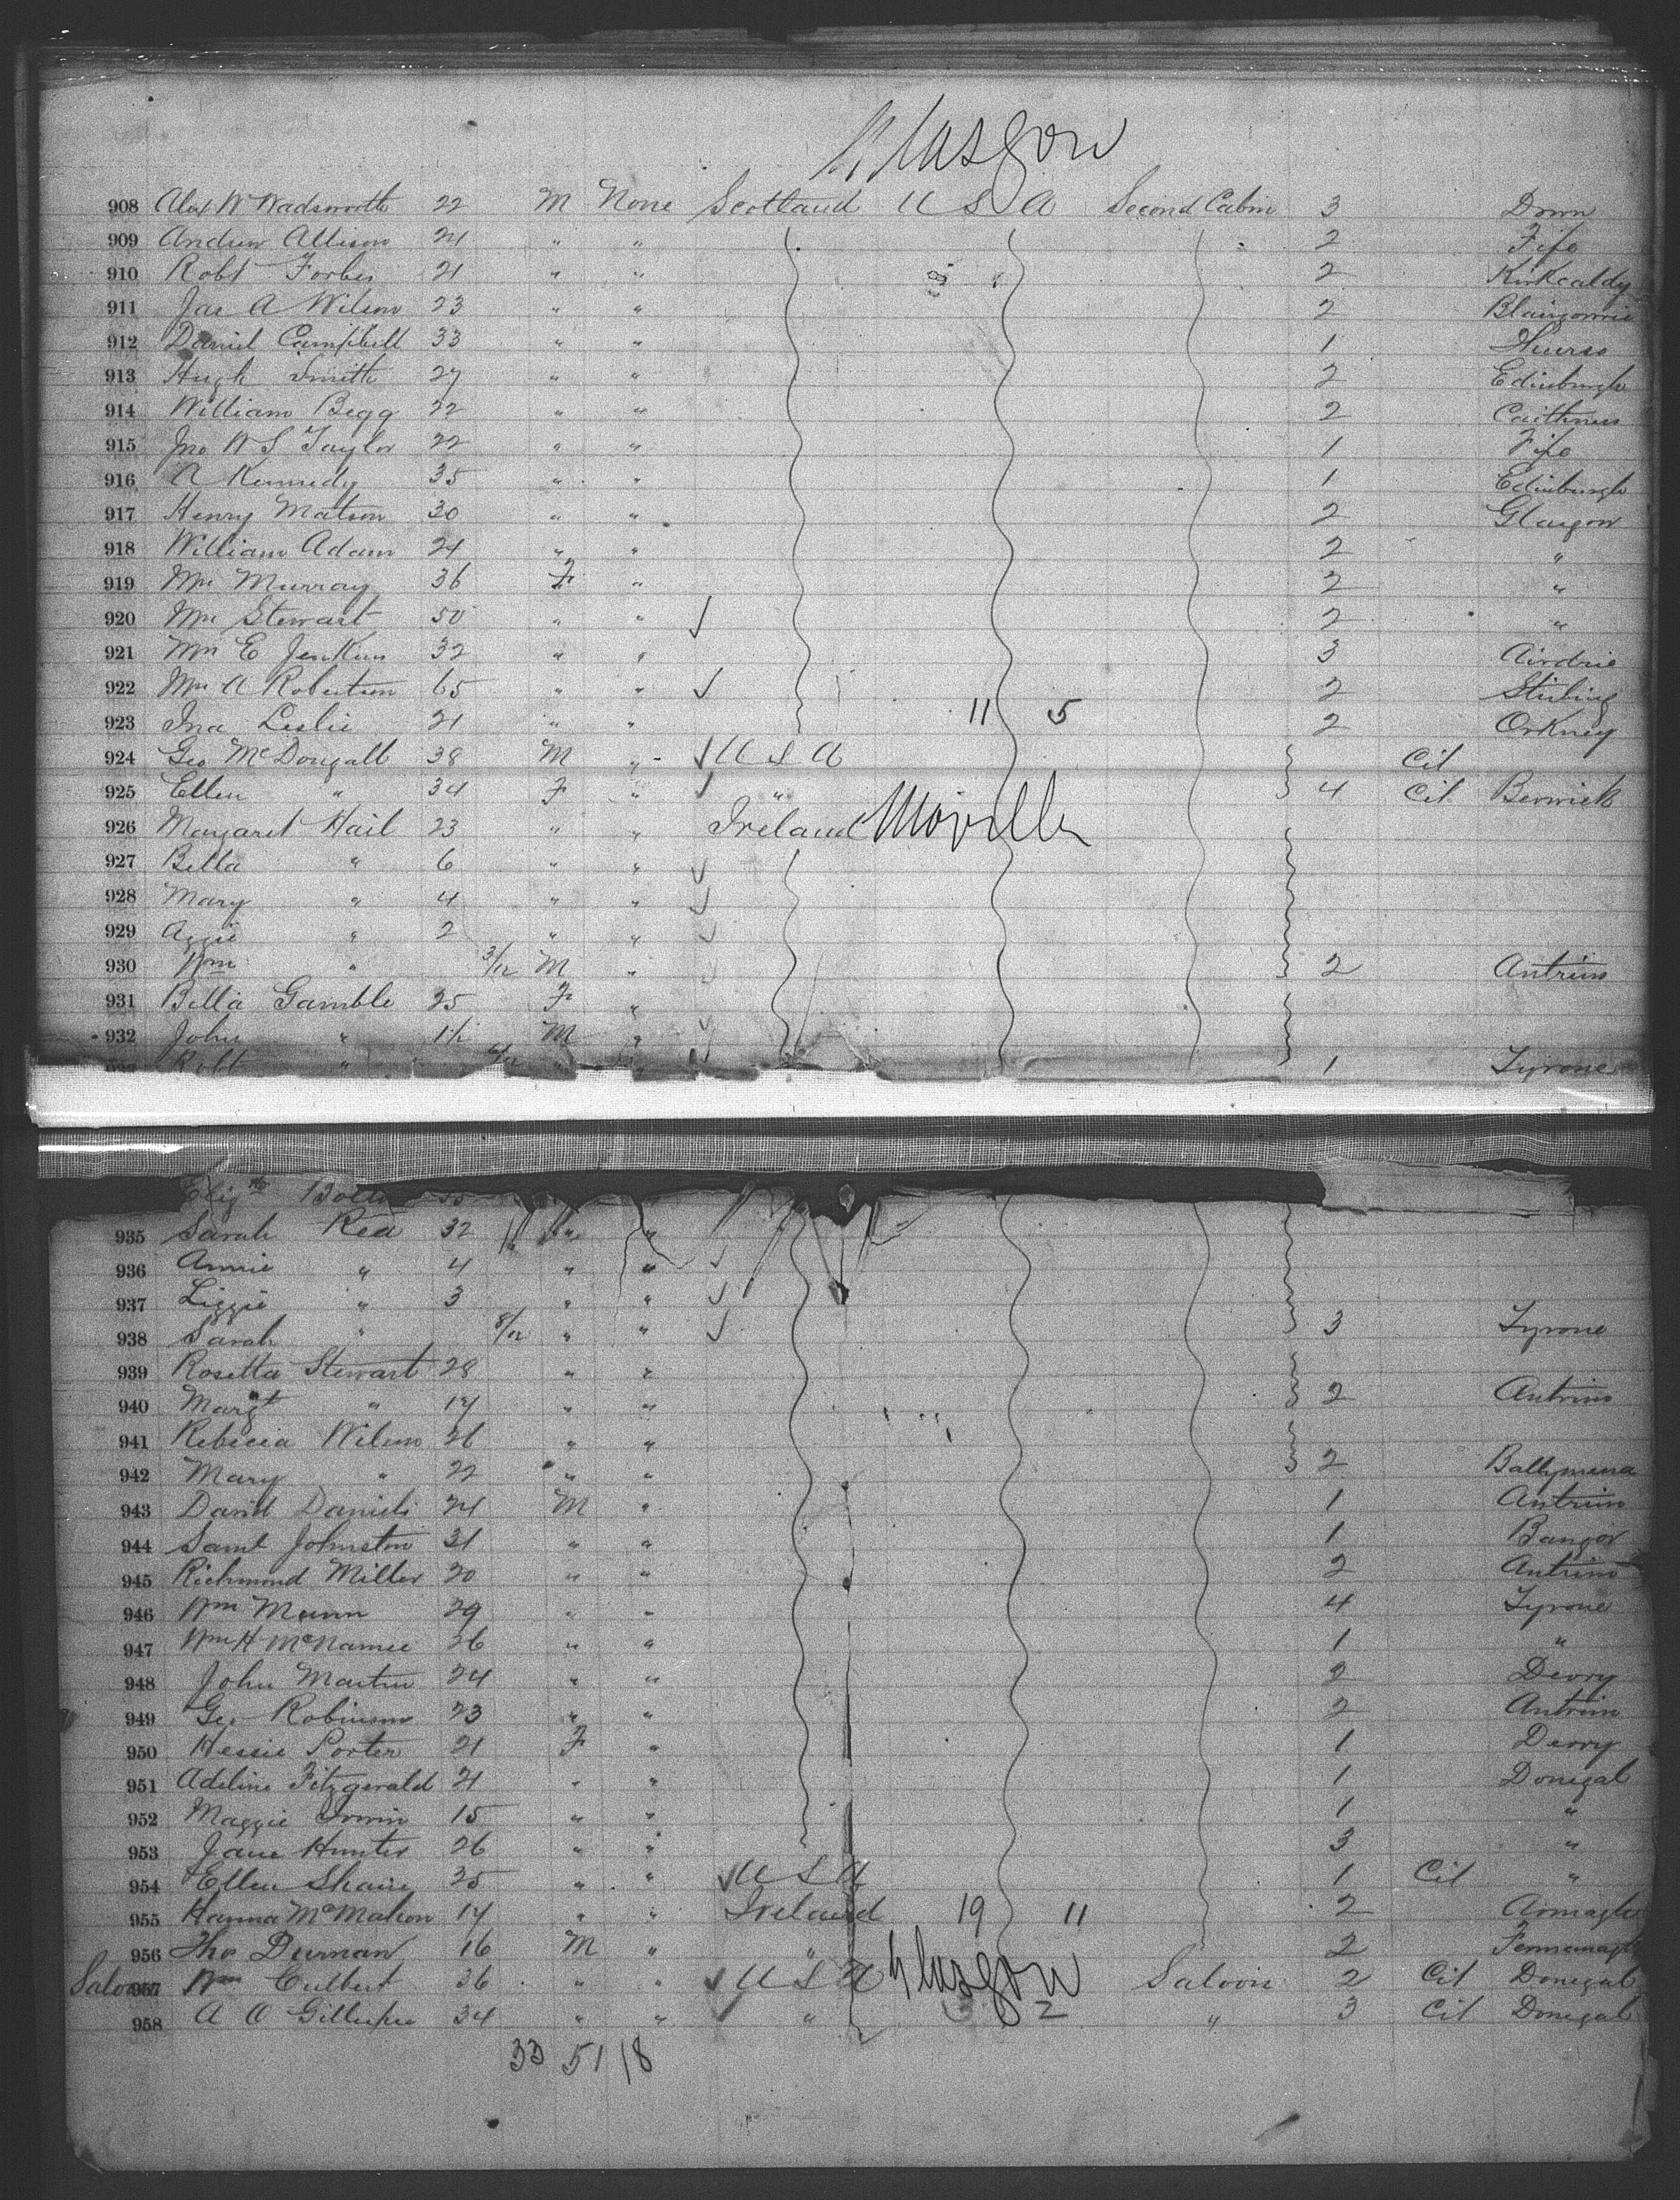 Glasgow
908 Alex W Wadsworth 22 M None Scotland U S A Second Cabin 3 Down
909 Andrew Allison 24 " " 2 Fife
910 Robt Forbes 21 " " 2 Kirkcaldy
911 Jas A Wilson 23 " " 2 Blairgowrie
912 Daniel Campbell 33 " " 1 Thurso
913 Hugh Smith 27 " " 2 Edinburgh
914 William Begg 22 " " 2 Caithness
915 Jno W S Taylor 22 " " 1 Fife
916 A Kennedy 35 " " 1 Edinburgh
917 Henry Matson 30 " " 2 Glasgow
918 William Adam 24 " " 2 "
919 Mrs Murray 36 F " 2 "
920 Mrs Stewart 50 " " 2 "
921 Mrs E Jenkins 32 " " 3 Airdrie
922 Mrs A Robertson 65 " " 2 Stirling
923 Ina Leslie 21 " " 11 5 2 Orkney
924 Geo McDougall 38 M " U S A Cit
925 Ellen " 34 F " " 4 Cit Berwick
926 Margaret Hail 23 " " Ireland Moville
927 Bella " 6 " "
928 Mary " 4 " "
929 Aggie " 2 " "
930 Wm " 3/12 M " 2 Antrim
931 Bella Gamble 25 F "
932 John " 1½ M "
Robt " 1 Tyrone
Elizth
935 Sarah Rea 32 " "
936 Annie " 4 " "
937 Lizzie " 3 " "
938 Sarah " 8/12 " " 3 Tyrone
939 Rosetta Stewart 28 " "
940 Margt " 17 " " 2 Antrim
941 Rebecca Wilson 26 " "
942 Mary " 22 " " 2 Ballymena
943 David Daniels 24 M " 1 Antrim
944 Saml Johnston 31 " " 1 Bangor
945 Richmond Miller 20 " " 2 Antrim
946 Wm Munn 29 " " 4 Tyrone
947 Wm H McNamee 26 " " 1 "
948 John Martin 24 " " 2 Derry
949 Geo Robinson 23 " " 2 Antrim
950 Hessie Porter 21 F " 1 Derry
951 Adeline Fitzgerald 21 " " 1 Donegal
952 Maggie Irwin 15 " " 1 "
953 Jane Hunter 26 " " 3 "
954 Ellen Shane 35 " " U S A 1 Cit "
955 Hanna McMahon 17 " " Ireland 19 11 2 Armagh
956 Tho Durnan 16 M " " 2 Fermanagh
Saloon 957 Wm Culbert 36 " " U S A Glasgow Saloon 2 Cit Donegal
958 A O Gillespie 34 " " " 2 " 3 Cit Donegal
33 51 18